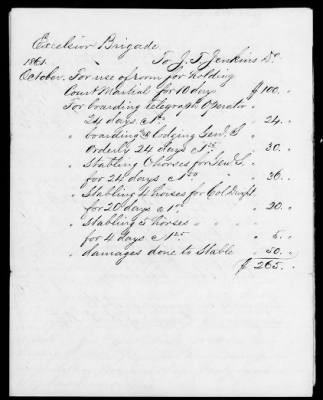 Excelsior Brigade
1861. To J. T. Jenkins Dr.
October. For use of room for holding
Court Martial for 10 days $ 100. "
For boarding telegraph Operator
24 days @ 1 24. "
" boarding & lodging Genl. S
Orderly 24 days 30. "
" Stabling horses for Genl. S.
for 24 days 36. "
" Stabling 4 horses for Col
for 20 days @ 1 20. "
" Stabling 5 horses " "
for 4 days @ 1 5. "
" damages done to Stable 50. "
$ 265. "